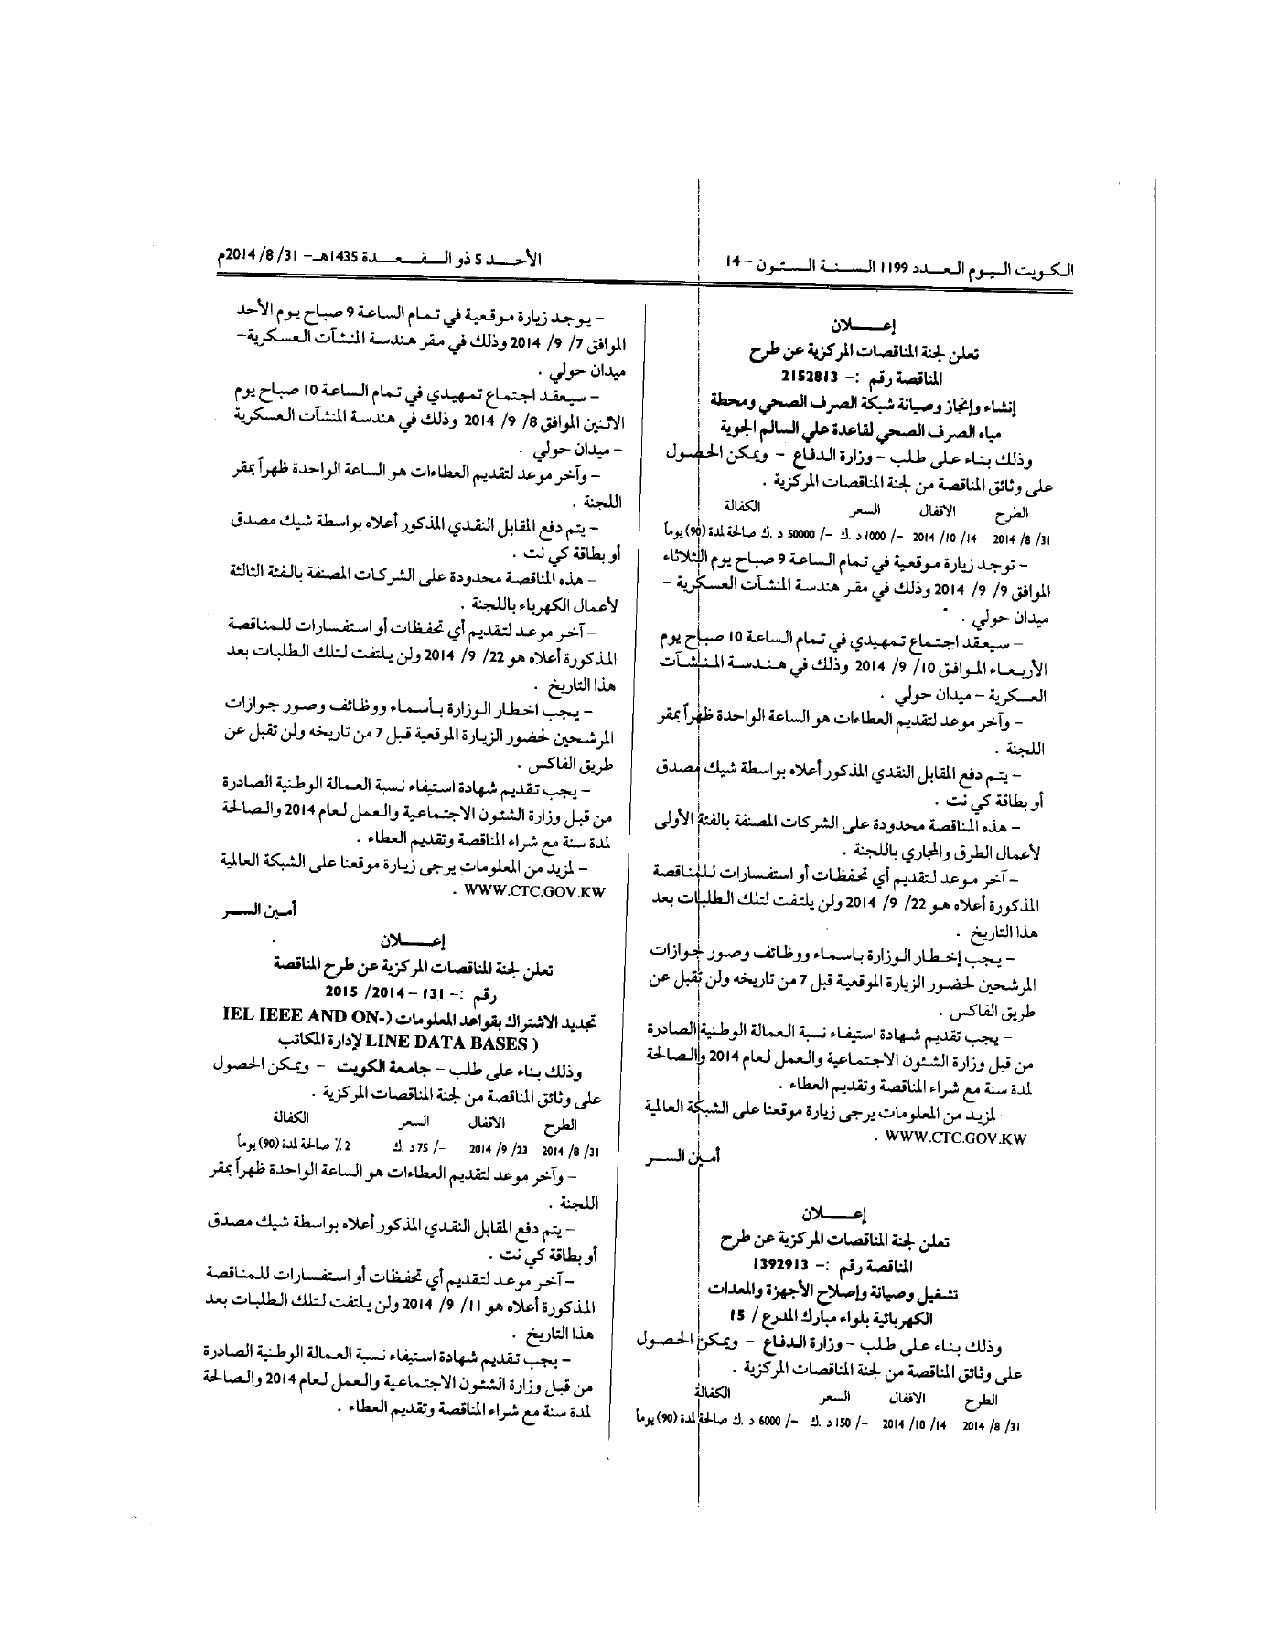 الكويت اليوم العدد 1199 السنة الستون - 14
الأحد 5 ذو القعدة 1435هـ - 31/ 8/ 2014م
إعلان
تعلن لجنة المناقصات المركزية عن طرح
المناقصة رقم :- 2152813
إنشاء وإنجاز وصيانة شبكة الصرف الصحي ومحطة
مياه الصرف الصحي لقاعدة علي السالم الجوية
وذلك بناء على طلب - وزارة الدفاع - ويمكن الحصول
على وثائق المناقصة من لجنة المناقصات المركزية .
الطرح الاقفال السعر الكفالة
31/ 8/ 2014 14/ 10/ 2014 -/1000 د. ك -/ 50000 د .ك صالحة لمدة (90) يوماً
- توجد زيارة موقعية في تمام الساعة 9 صباح يوم الثلاثاء
الموافق 9/ 9/ 2014 وذلك في مقر هندسة المنشآت العسكرية -
ميدان حولي .
- سيعقد اجتماع تمهيدي في تمام الساعة 10 صباح يوم
الأربعاء الموافق 10/ 9/ 2014 وذلك في هندسة المنشآت
العسكرية - ميدان حولي .
- وآخر موعد لتقديم العطاءات هو الساعة الواحدة ظهراً بمقر
اللجنة .
- يتم دفع المقابل النقدي المذكور أعلاه بواسطة شيك مصدق
أو بطاقة كي نت .
- هذه المناقصة محدودة على الشركات المصنفة بالفئة الأولى
لأعمال الطرق والمجاري باللجنة .
- آخر موعد لتقديم أي تحفظات أو استفسارات للمناقصة
المذكورة أعلاه هو 22/ 9/ 2014 ولن يلتفت لتلك الطلبات بعد
هذا التاريخ .
- يجب إخطار الوزارة باسماء ووظائف وصور جوازات
المرشحين لحضور الزيارة الموقعية قبل 7 من تاريخه ولن تقبل عن
طريق الفاكس .
- يجب تقديم شهادة استيفاء نسبة العمالة الوطنية الصادرة
من قبل وزارة الشئون الاجتماعية والعمل لعام 2014 والصالحة
لمدة سنة مع شراء المناقصة وتقديم العطاء .
لمزيد من المعلومات يرجى زيارة موقعنا على الشبكة العالمية
WWW.CTC.GOV.KW .
أمين السر
إعلان
تعلن لجنة المناقصات المركزية عن طرح
المناقصة رقم :- 1392913
تشغيل وصيانة وإصلاح الأجهزة والمعدات
الكهربائية بلواء مبارك المدرع / 15
وذلك بناء على طلب - وزارة الدفاع - ويمكن الحصول
على وثائق المناقصة من لجنة المناقصات المركزية .
الطرح الاقفال السعر الكفالة
31/ 8/ 2014 14/ 10/ 2014 -/150 د .ك -/ 6000 د .ك صالحة لمدة (90) يوماً
- يوجد زيارة موقعية في تمام الساعة 9 صباح يوم الأحد
الموافق 7/ 9/ 2014 وذلك في مقر هندسة المنشآت العسكرية-
ميدان حولي .
- سيعقد اجتماع تمهيدي في تمام الساعة 10 صباح يوم
الاثنين الموافق 8/ 9/ 2014 وذلك في هندسة المنشآت العسكرية
- ميدان حولي .
- وآخر موعد لتقديم العطاءات هو الساعة الواحدة ظهراً بمقر
اللجنة .
- يتم دفع المقابل النقدي المذكور أعلاه بواسطة شيك مصدق
أو بطاقة كي نت .
- هذه المناقصة محدودة على الشركات المصنفة بالفئة الثالثة
لأعمال الكهرباء باللجنة .
- آخر موعد لتقديم أي تحفظات أو استفسارات للمناقصة
المذكورة أعلاه هو 22/ 9/ 2014 ولن يلتفت لتلك الطلبات بعد
هذا التاريخ .
- يجب اخطار الوزارة بأسماء ووظائف وصور جوازات
المرشحين حضور الزيارة الموقعية قبل 7 من تاريخه ولن تقبل عن
طريق الفاكس .
- يجب تقديم شهادة استيفاء نسبة العمالة الوطنية الصادرة
من قبل وزارة الشئون الاجتماعية والعمل لعام 2014 والصالحة
لمدة سنة مع شراء المناقصة وتقديم العطاء .
- لمزيد من المعلومات يرجى زيارة موقعنا على الشبكة العالمية
WWW.CTC.GOV.KW .
أمين السر
إعلان
تعلن لجنة المناقصات المركزية عن طرح المناقصة
رقم :- 131 - 2014/ 2015
تجديد الاشتراك بقواعد المعلومات (IEL IEEE AND ON-
LINE DATA BASES ) لإدارة المكاتب
وذلك بناء على طلب - جامعة الكويت - ويمكن الحصول
على وثائق المناقصة من لجنة المناقصات المركزية .
الطرح الاقفال السعر الكفالة
31/ 8/ 2014 23/ 9/ 2014 -/ 75 د. ك 2 ٪ صالحة لمدة (90) يوماً
- وآخر موعد لتقديم العطاءات هو الساعة الواحدة ظهراً بمقر
اللجنة .
- يتم دفع المقابل النقدي المذكور أعلاه بواسطة شيك مصدق
أو بطاقة كي نت .
- آخر موعد لتقديم أي تحفظات أو استفسارات للمناقصة
المذكورة أعلاه هو 11/ 9/ 2014 ولن يلتفت لتلك الطلبات بعد
هذا التاريخ .
- يجب تقديم شهادة استيفاء نسبة العمالة الوطنية الصادرة
من قبل وزارة الشئون الاجتماعية والعمل لعام 2014 والصالحة
لمدة سنة مع شراء المناقصة وتقديم العطاء .